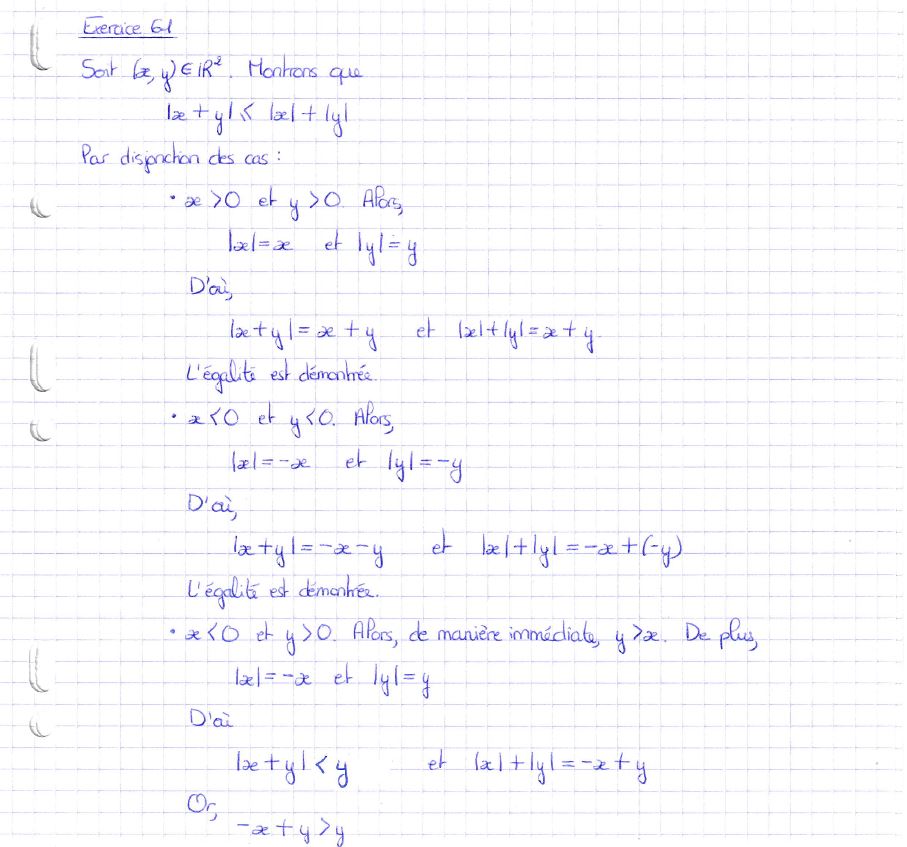 Exercice 61
Soit (x, y) ∈ ℝ². Montrons que
|x + y| ≤ |x| + |y|
Par disjonction des cas :
• x > 0 et y > 0. Alors,
|x| = x et |y| = y
D'où,
|x + y| = x + y et |x| + |y| = x + y.
L'égalité est démontrée.
• x < 0 et y < 0. Alors,
|x| = -x et |y| = -y
D'où,
|x + y| = -x - y et |x| + |y| = -x + (-y)
L'égalité est démontrée.
• x < 0 et y > 0. Alors, de manière immédiate, y > x. De plus,
|x| = -x et |y| = y
D'où
|x + y| < y et |x| + |y| = -x + y
Or,
-x + y > y